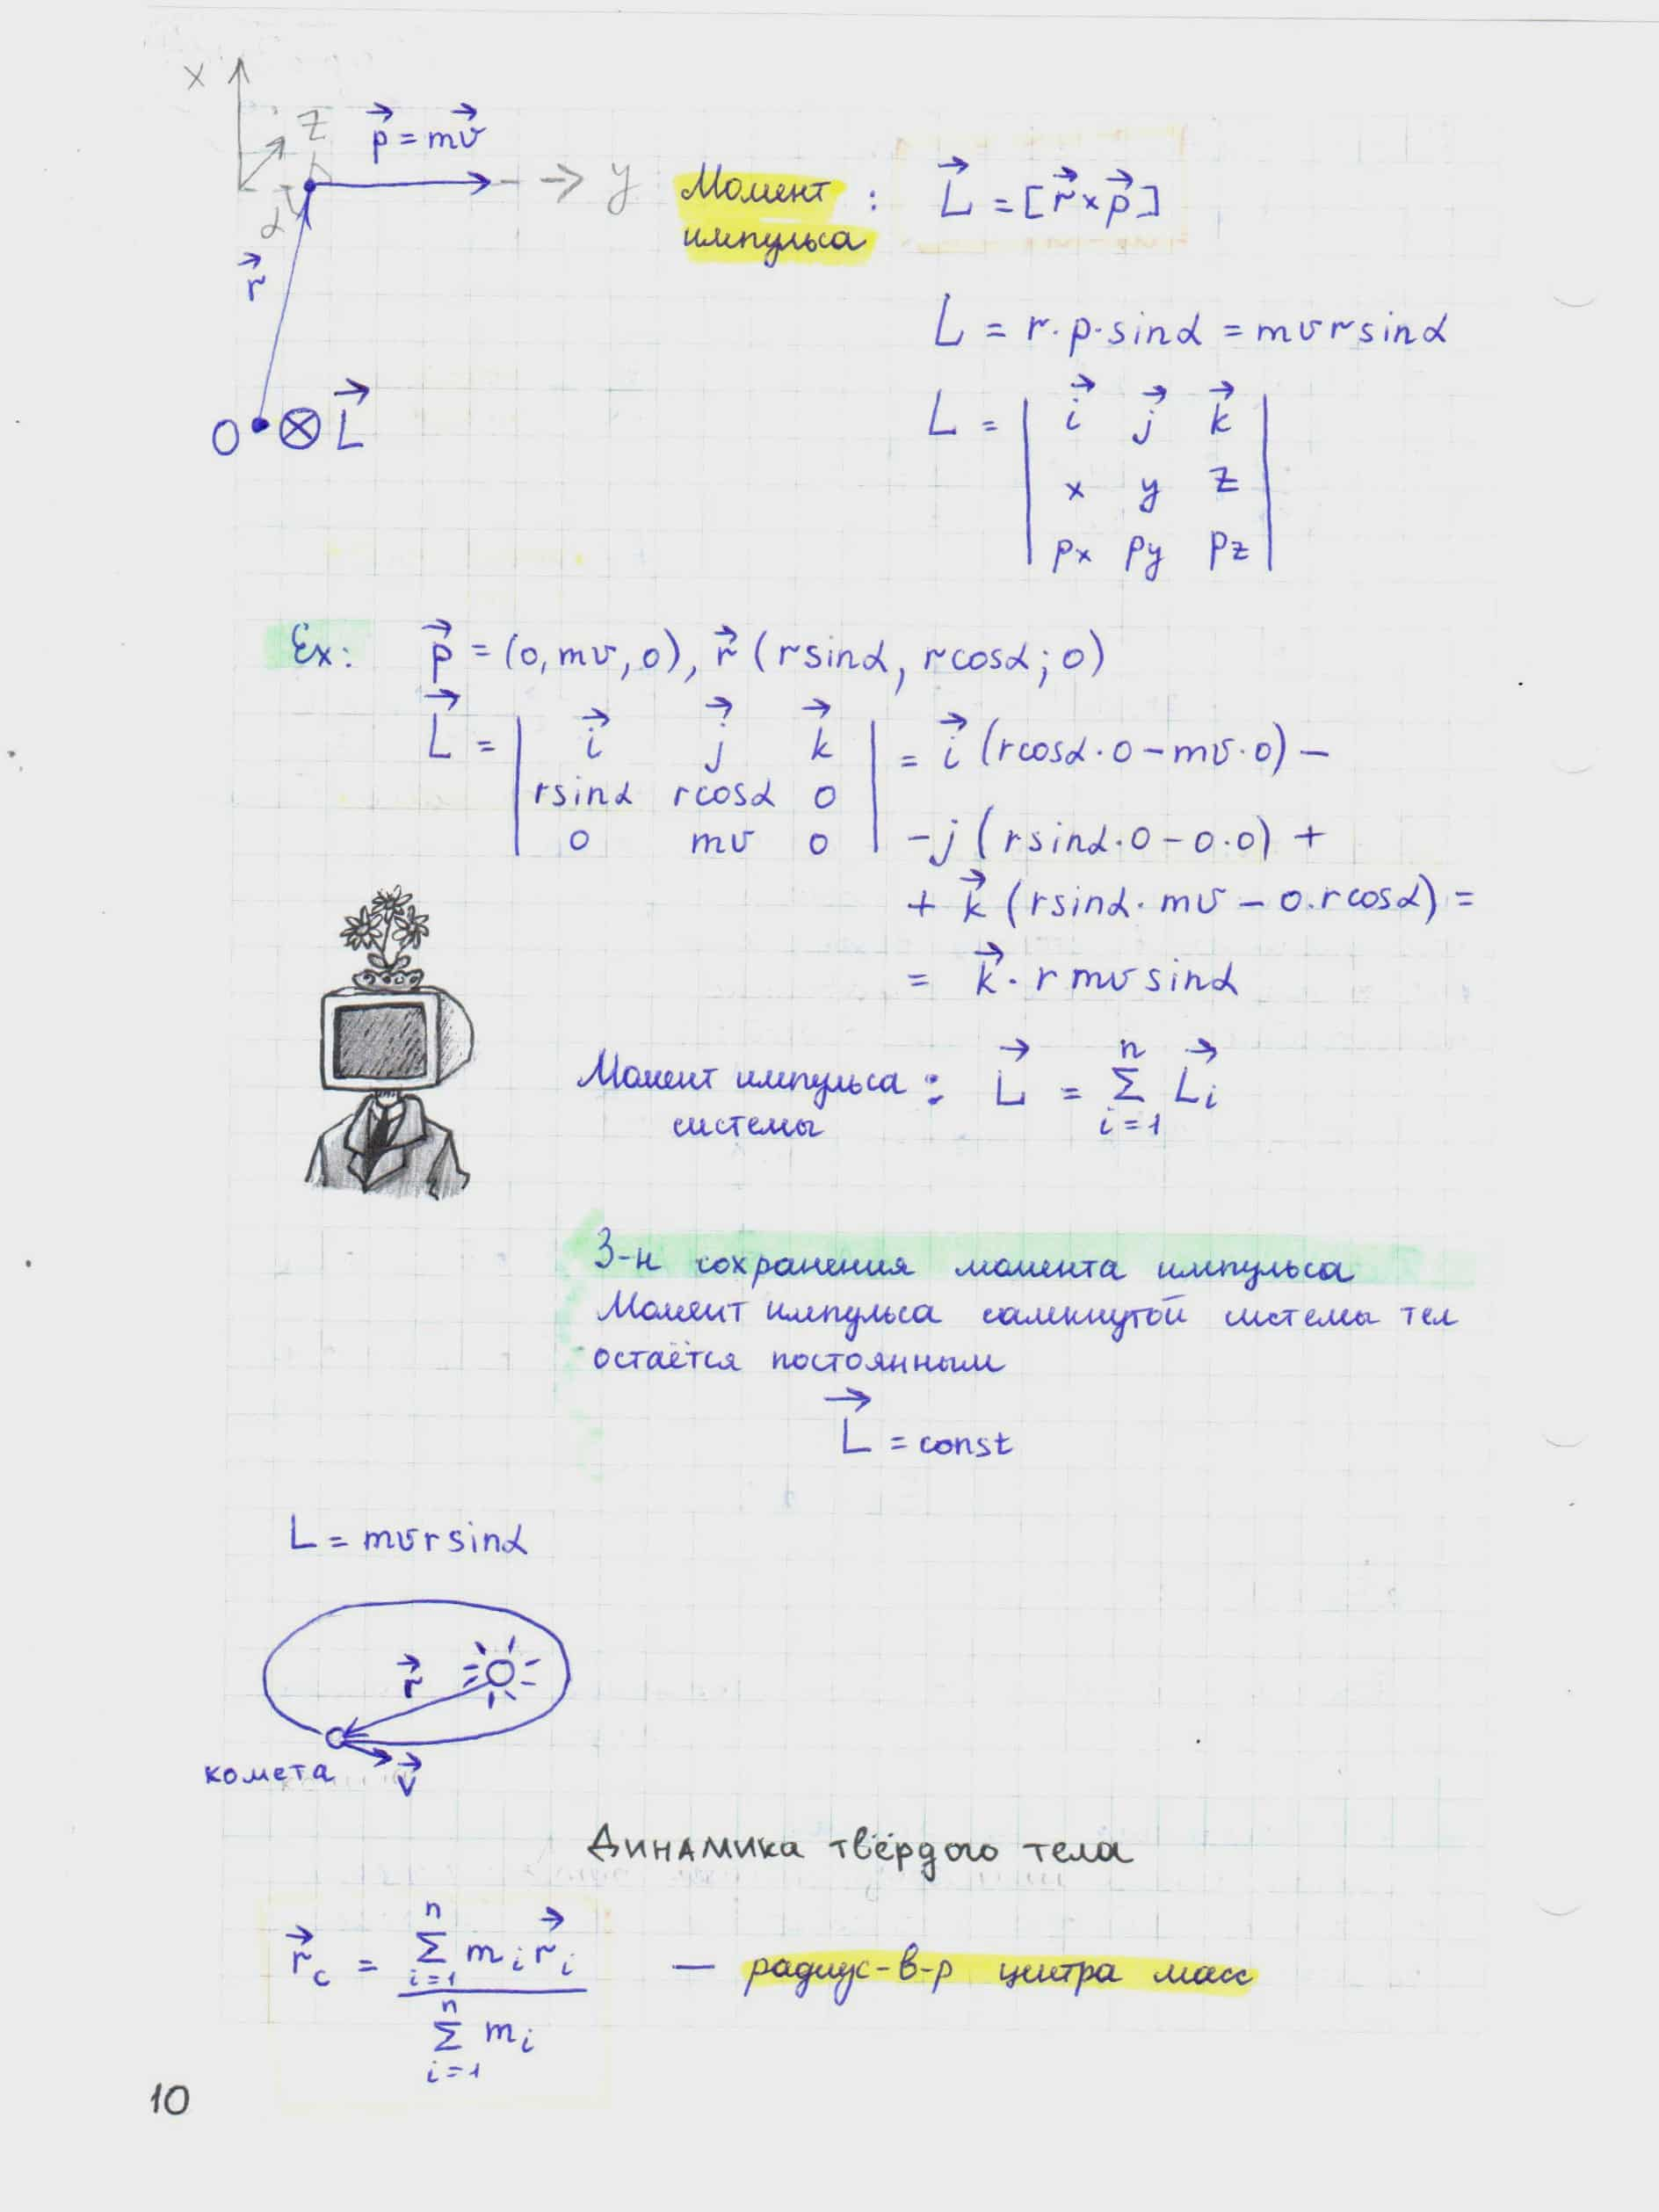 x
z
p⃗ = mv⃗
y
α
r⃗
O ⊗ L⃗
Момент : L⃗ = [r⃗ × p⃗]
импульса
L = r · p · sinα = mvr sinα
L = | i⃗ j⃗ k⃗ |
| x y z |
| px py pz |
Ex: p⃗ = (0, mv, 0), r⃗ (r sinα, r cosα; 0)
L⃗ = | i⃗ j⃗ k⃗ | = i⃗ (r cosα · 0 − mv · 0) −
| r sinα r cosα 0 |
| 0 mv 0 | − j (r sinα · 0 − 0 · 0) +
+ k⃗ (r sinα · mv − 0 · r cosα) =
= k⃗ · r mv sinα
Момент импульса : L⃗ = Σ_{i=1}^{n} L⃗i
системы
З-н сохранения момента импульса
Момент импульса замкнутой системы тел
остаётся постоянным
L⃗ = const
L = mvr sinα
r⃗
комета
v⃗
Динамика твёрдого тела
r⃗c = Σ_{i=1}^{n} mi r⃗i / Σ_{i=1}^{n} mi — радиус-в-р центра масс
10